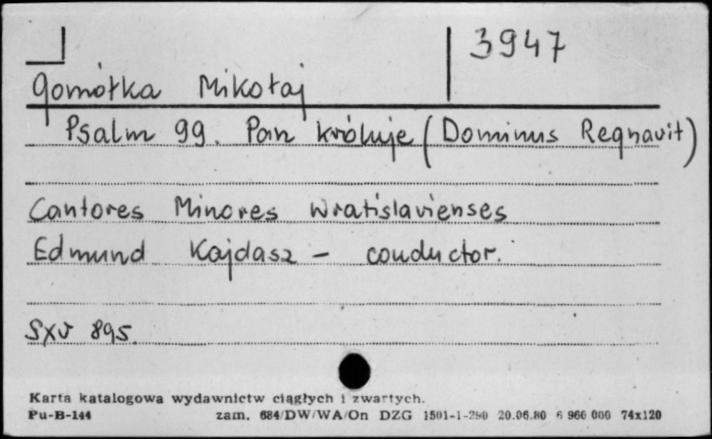 3947
Gomółka Mikołaj
Psalm 99. Pan króluje (Dominus Regnavit)
Cantores Minores Wratislavienses
Edmund Kajdasz - conductor.
SXV 895.
Karta katalogowa wydawnictw ciągłych i zwartych.
Pu-B-144 zam. 684/DW/WA/On DZG 1501-1-290 20.06.80 6 960 000 74x120